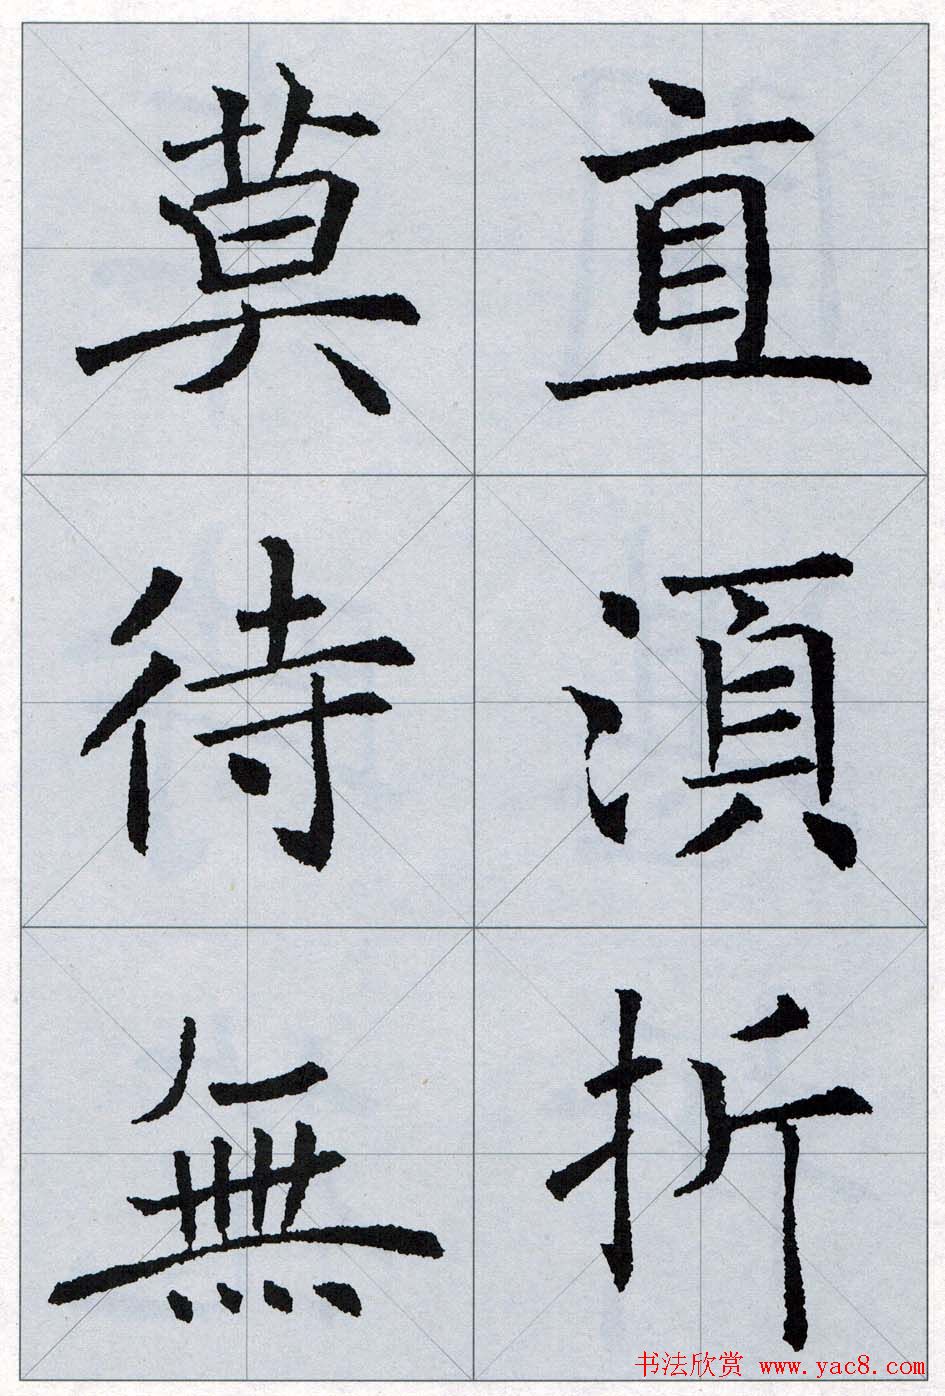 直須折
莫待無
书法欣赏 www.yac8.com